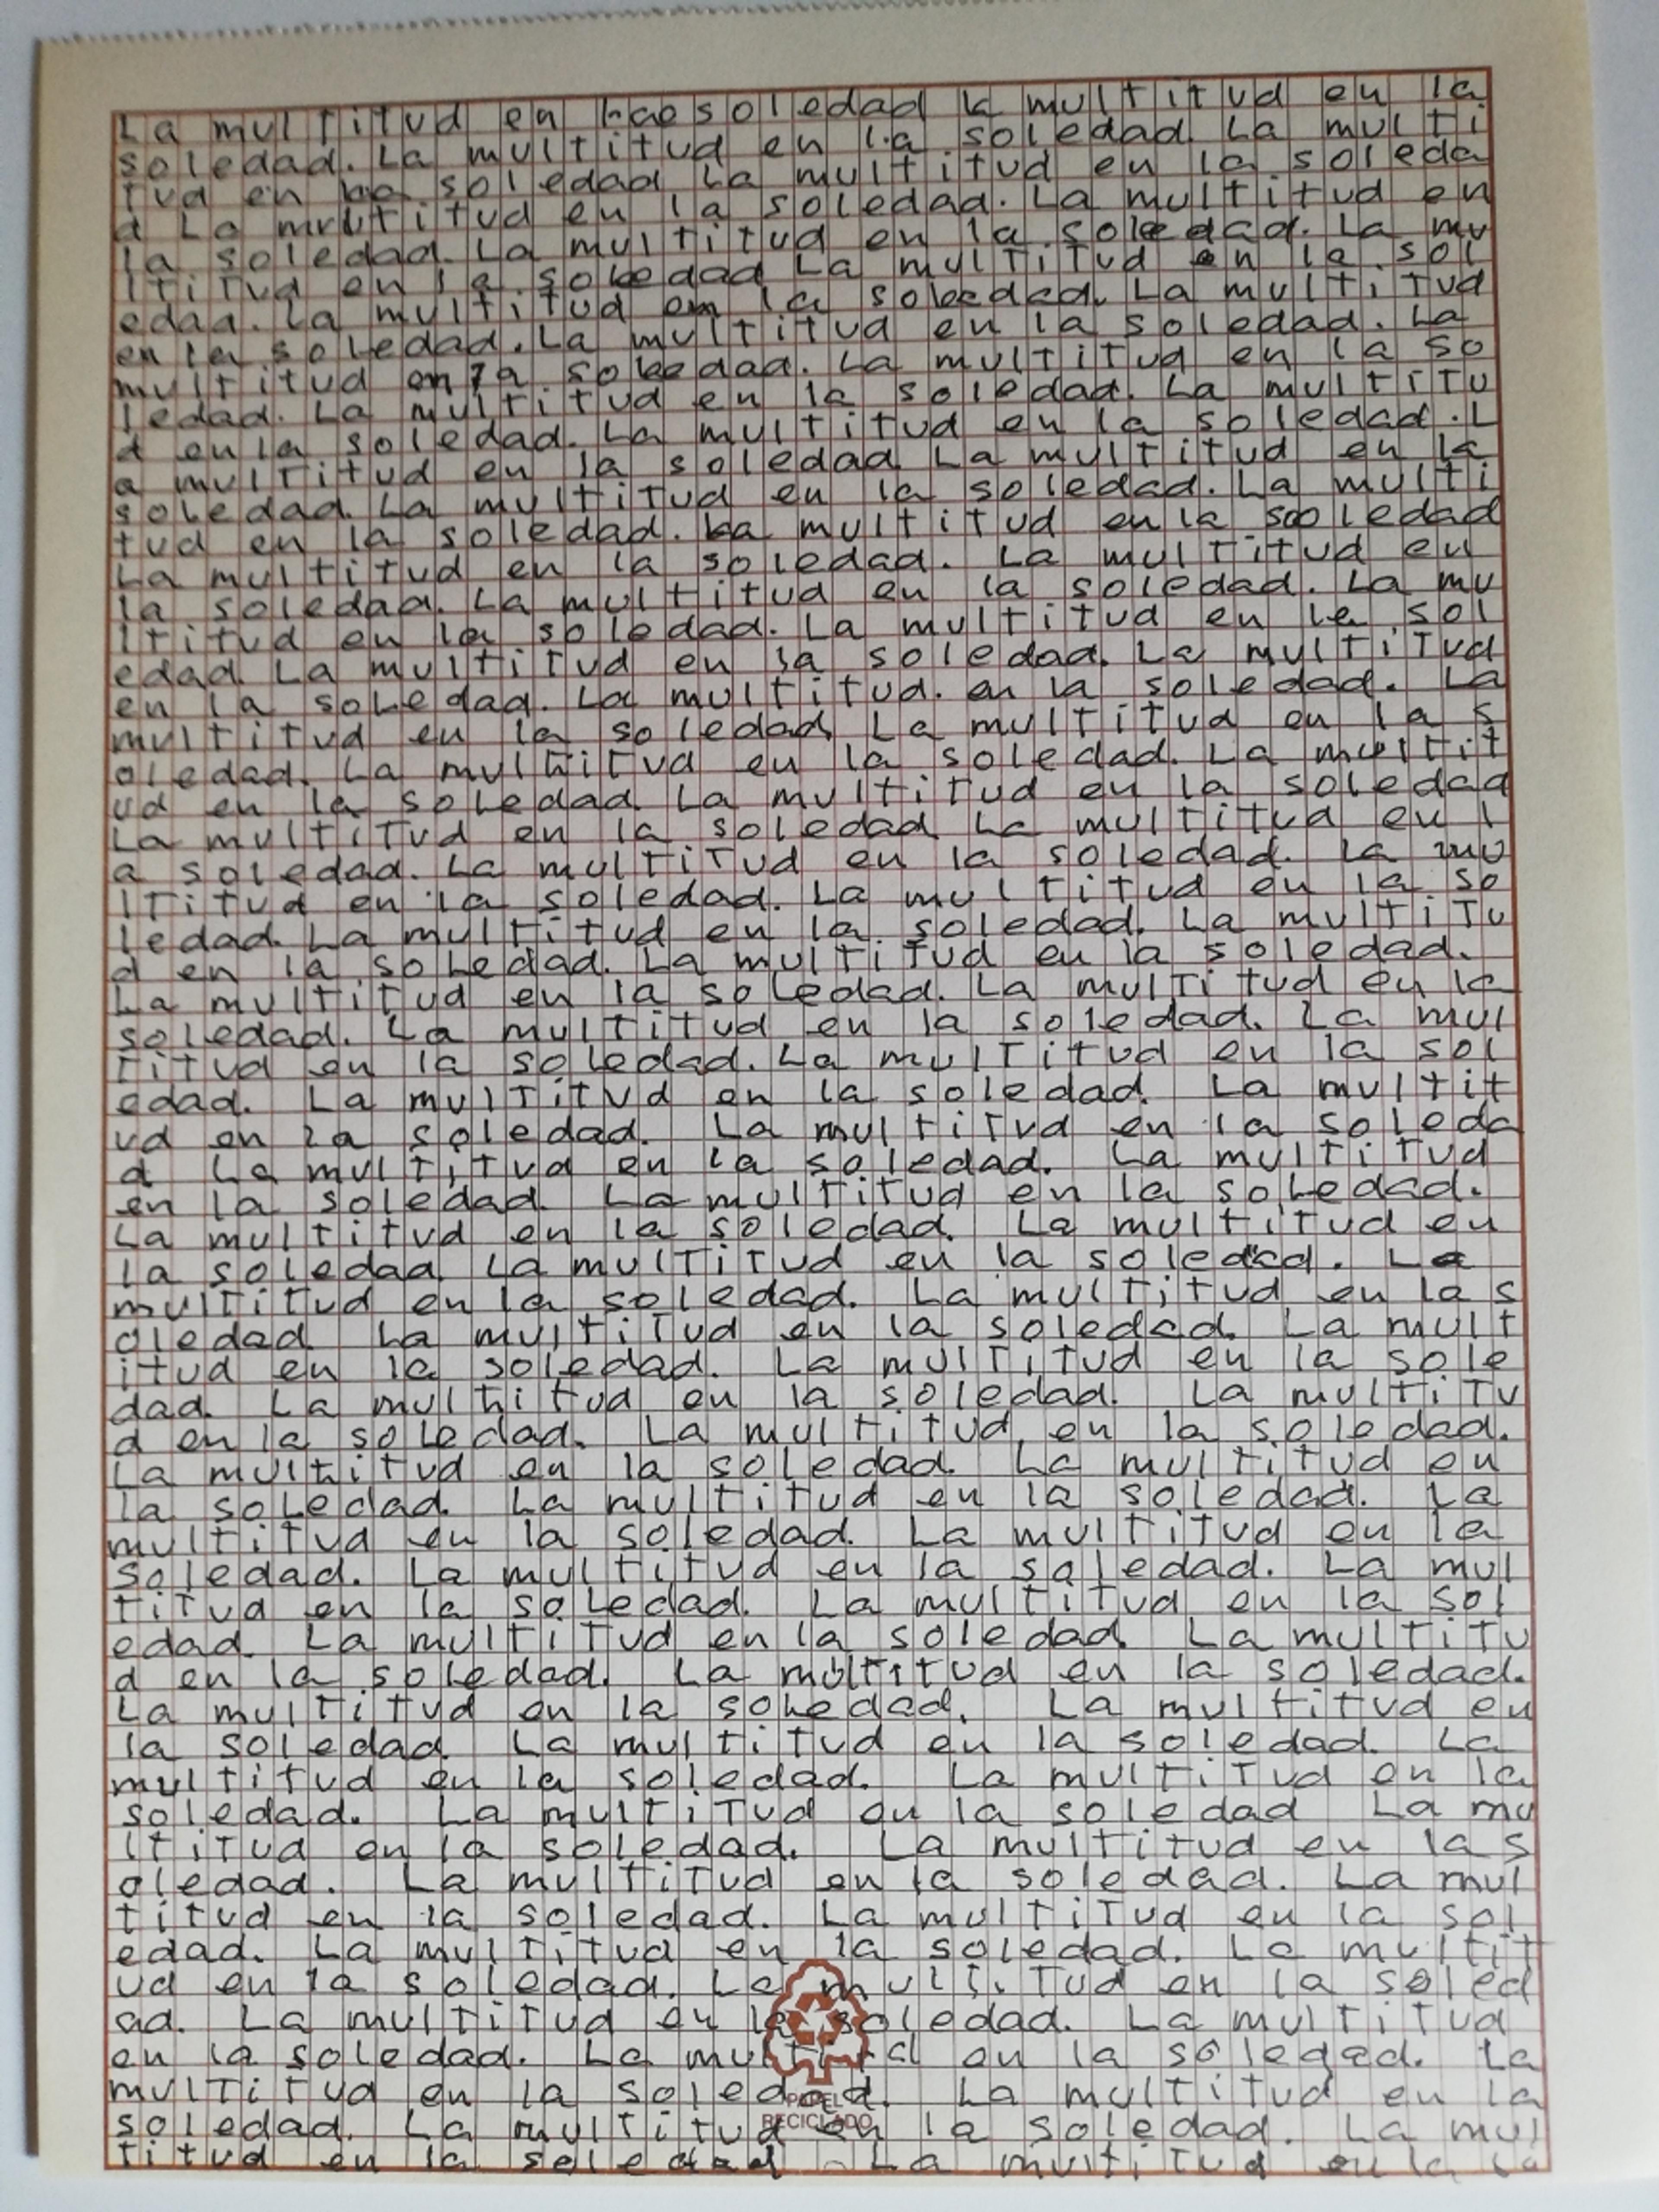 La multitud en la soledad La multitud en la
soledad. La multitud en la soledad. La multi
tud en la soledad. La multitud en la soleda
d La multitud en la soledad. La multitud en
la soledad. La multitud en la soledad. La mu
ltitud en la soledad La multitud en la sol
edad. La multitud en la soledad. La multitud
en la soledad. La multitud en la soledad. La
multitud en la soledad. La multitud en la so
ledad. La multitud en la soledad. La multitu
d en la soledad. La multitud en la soledad. L
a multitud en la soledad La multitud en la
soledad. La multitud en la soledad. La multi
tud en la soledad. La multitud en la sooledad
La multitud en la soledad. La multitud en
la soledad. La multitud en la soledad. La mu
ltitud en la soledad. La multitud en la sol
edad. La multitud en la soledad. La multitud
en la soledad. La multitud. en la soledad. La
multitud en la soledad. La multitud en la s
oledad. La multitud en la soledad. La multit
ud en la soledad. La multitud en la soledad
La multitud en la soledad. La multitud en l
a soledad. La multitud en la soledad. La mu
ltitud en la soledad. La multitud en la so
ledad. La multitud en la soledad. La multitu
d en la soledad. La multitud en la soledad.
La multitud en la soledad. La multitud en la
soledad. La multitud en la soledad. La mul
titud en la soledad. La multitud en la sol
edad. La multitud en la soledad. La multit
ud en la soledad. La multitud en la soleda
d La multitud en la soledad. La multitud
en la soledad. La multitud en la soledad.
La multitud en la soledad. La multitud en
la soledad. La multitud en la soledad. La
multitud en la soledad. La multitud en la s
oledad La multitud en la soledad. La mult
itud en la soledad. La multitud en la sole
dad. La multitud en la soledad. La multitu
d en la soledad. La multitud en la soledad.
La multitud en la soledad. La multitud en
la soledad. La multitud en la soledad. La
multitud en la soledad. La multitud en la
soledad. La multitud en la soledad. La mul
titud en la soledad. La multitud en la sol
edad. La multitud en la soledad. La multitu
d en la soledad. La multitud en la soledad.
La multitud en la soledad. La multitud en
la soledad. La multitud en la soledad. La
multitud en la soledad. La multitud en la
soledad. La multitud en la soledad La mu
ltitud en la soledad. La multitud en la s
oledad. La multitud en la soledad. La mul
titud en la soledad. La multitud en la sol
edad. La multitud en la soledad. La multit
ud en la soledad. La multitud en la soled
ad. La multitud en la soledad. La multitud
en la soledad. La multitud en la soledad. La
multitud en la soledad. La multitud en la
PAPEL
soledad. La multitud en la soledad. La mul
RECICLADO
titud en la soledad La multitud en la